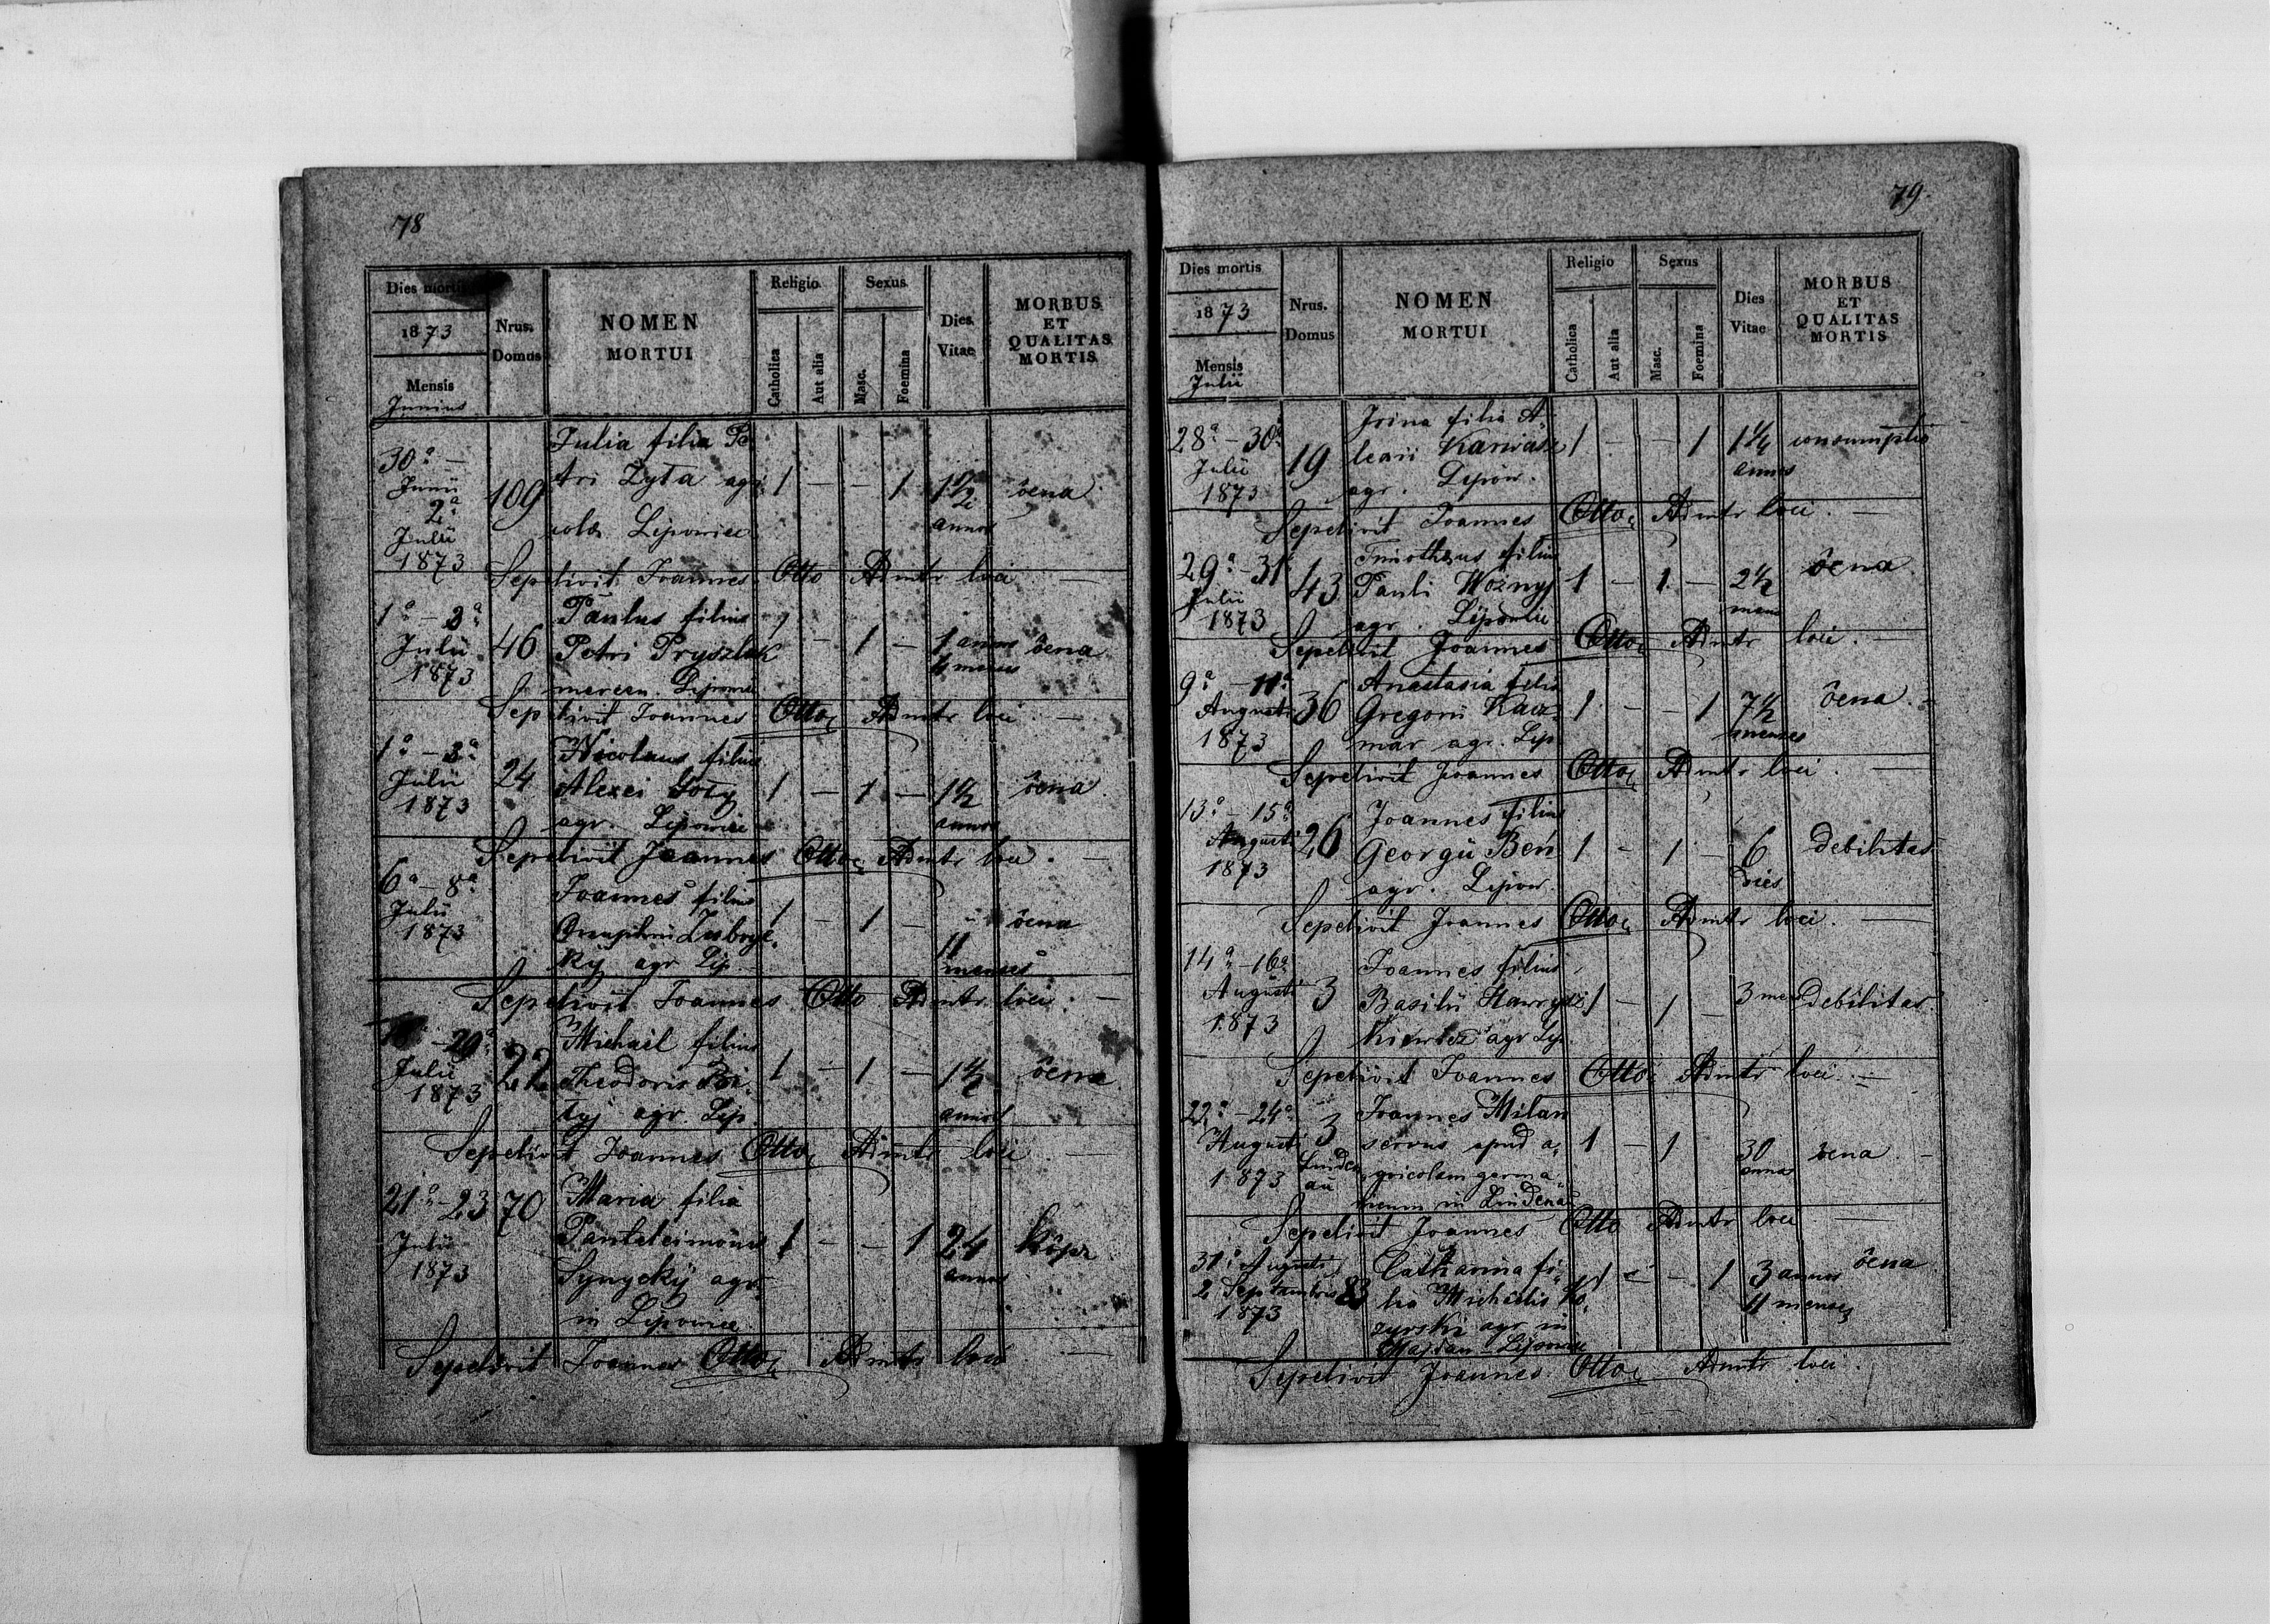 78
Dies mortis
1873
Mensis
Junius
Nrus.
Domus
NOMEN
MORTUI
Religio
Catholica
Aut alia
Sexus
Masc.
Foemina
Dies
Vitae
MORBUS
ET
QUALITAS
MORTIS
30a —
Junii
2a
Julii
1873
109
Julia filia Pe
tri Zyta agri
colae Lipowice
1 — — 1
1 1/2
annos
ôena
Sepelivit Joannes Otto Admtr loci —
1a — 3a
Julii
1873
46
Paulus filius
Petri Pryszlak
mercen. Lipowice
1 — 1 —
1 annus
4 menses
ôena
Sepelivit Joannes Otto Admtr loci —
1a — 3a
Julii
1873
24
Nicolaus filius
Alexei
agr. Lipowice
1 — 1 —
1 1/2
annos
ôena
Sepelivit Joannes Otto Admtr loci —
6a — 8a
Julii
1873
Joannes filius
Onuphrii
kÿ agr Lip
1 — 1
11
menses
ôena
Sepelivit Joannes Otto Admtr loci —
— 20a
Julii
1873
Michael filius
Theodoris
tyj agr. Lip
1 — 1 —
1 1/2
annos
ôena
Sepelivit Joannes Otto Admtr loci —
21a — 23
Julii
1873
70
Maria filia
Panteleimonis
Synyckÿ agr.
in Lipowice
1 — — 1
24
annos
kôpr
Sepelivit Joannes Otto Admtr loci —
79.
Dies mortis
1873
Mensis
Julii
Nrus.
Domus
NOMEN
MORTUI
Religio
Catholica
Aut alia
Sexus
Masc.
Foemina
Dies
Vitae
MORBUS
ET
QUALITAS
MORTIS
28a — 30a
Julii
1873
19
Irina filia A
Karwasz
agr. Lipow.
1 — — 1
annos
consumptio
Sepelivit Joannes Otto Admtr loci. —
29a — 31
Julii
1873
43
Timotheus filius
Pauli Woznyj
agr. Lipowice
1 — 1 —
2 1/2
mens
ôena
Sepelivit Joannes Otto Admtr loci. —
9a — 11a
Augusti
1873
36
Anastasia filia
Gregorii Kacz
mar agr. Lip.
1 — — 1
7 1/2
menses
ôena
Sepelivit Joannes Otto Admtr loci. —
13a — 15a
Augusti
1873
26
Joannes filius
Georgii Beń
agr. Lipow.
1 — 1 —
6
dies
debilitas
Sepelivit Joannes Otto Admtr loci. —
14a — 16a
Augusti
1873
3
Joannes filius
Basilii Hawrysz
kiewicz agr Lip.
1 — 1 —
3 men
debilitas
Sepelivit Joannes Otto Admtr loci. —
22a — 24a
Augusti
1873
3
Linden
au
Joannes Milan
servus apud a
gricolam germa
nicum in Lindenau
1 — 1
30
annos
ôena —
Sepelivit Joannes Otto Admtr loci —
31a Augusti
2 Septembris
1873
83
Catharina fi
lia Michaelis Ko
zyrski agr in
Majdan Lipowice
1 — — 1
3 annos
11 menses
ôena
Sepelivit Joannes Otto Admtr loci.